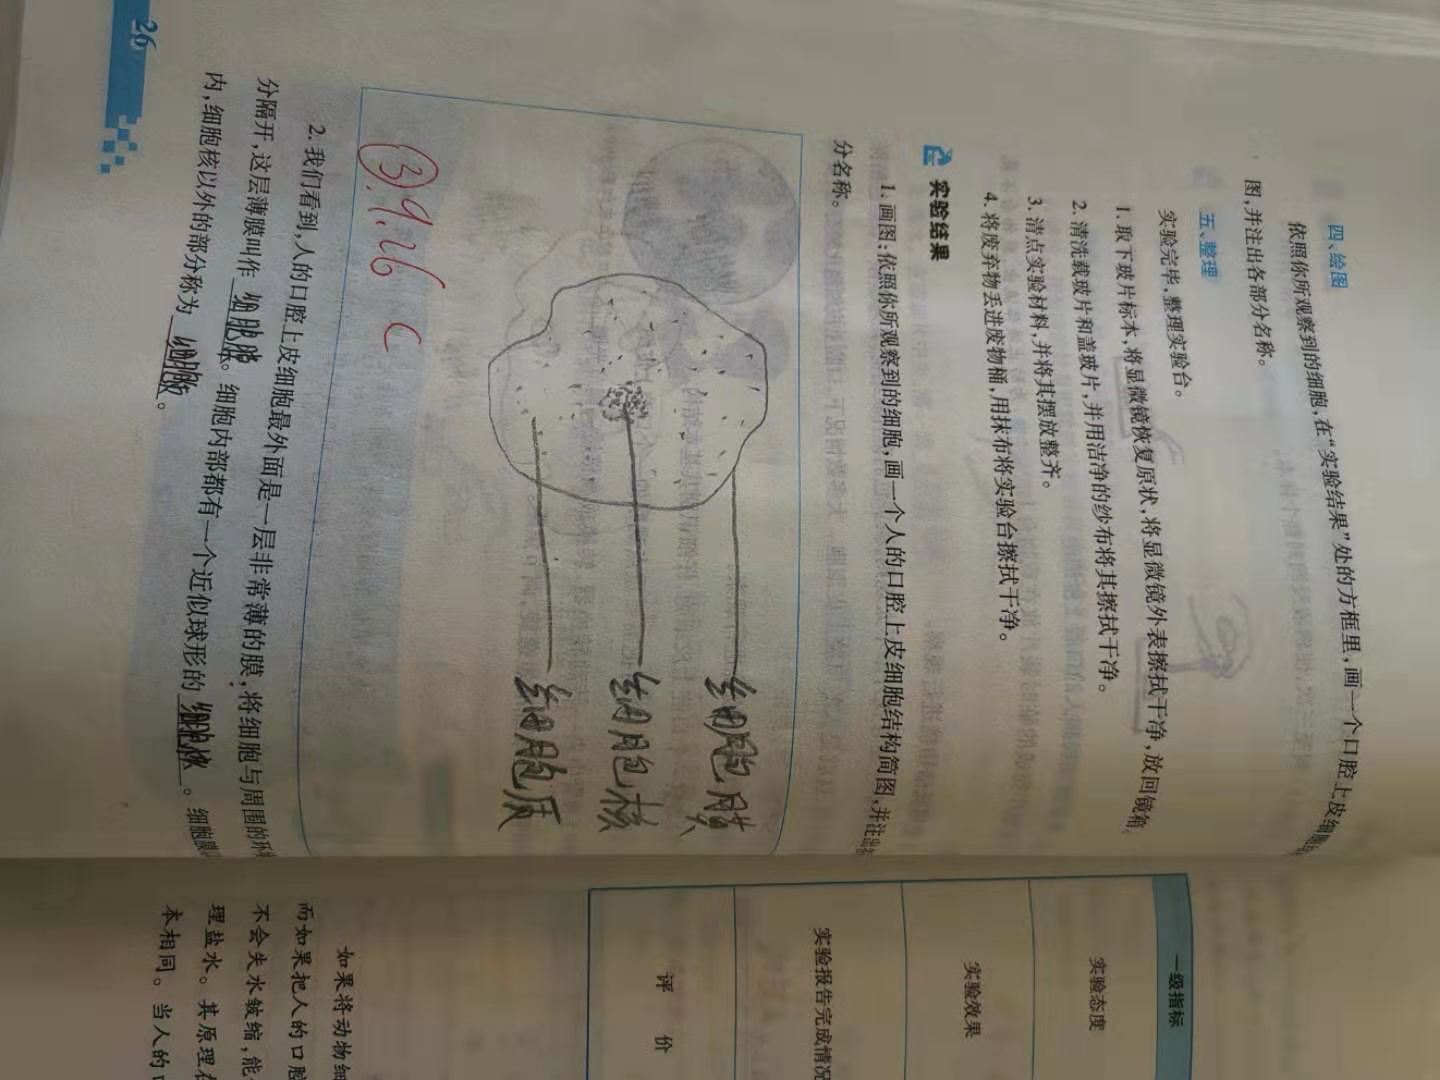 四、绘图
依照你所观察到的细胞,在“实验结果”处的方框里,画一个口腔上皮细胞
图,并注出各部分名称。
五、整理
实验完毕,整理实验台。
1. 取下玻片标本,将显微镜恢复原状,将显微镜外表擦拭干净,放回镜箱
2. 清洗载玻片和盖玻片,并用洁净的纱布将其擦拭干净。
3. 清点实验材料,并将其摆放整齐。
4. 将废弃物丢进废物桶,用抹布将实验台擦拭干净。
实验结果
1. 画图:依照你所观察到的细胞,画一个人的口腔上皮细胞结构简图,并注出各
分名称。
细胞膜
细胞核
细胞质
③ 9.26 C
2. 我们看到,人的口腔上皮细胞最外面是一层非常薄的膜,将细胞与周围的环
分隔开,这层薄膜叫作 细胞膜。细胞内部都有一个近似球形的 细胞核。细胞膜
内,细胞核以外的部分称为 细胞质。
26
一级指标
实验态度
实验效果
实验报告完成情况
评 价
如果将动物细
而如果把人的口腔
不会失水皱缩,能
理盐水。其原理在
本相同。当人的口